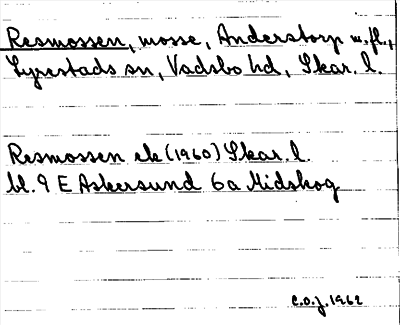 Resmossen, mosse, Anderstorp m.fl.,
Lyrestads sn, Vadsbo hd, Skar. l.
Resmossen ek (1960) Skar. l.
bl. 9 E Askersund 6a Midskog
C.O.J. 1962